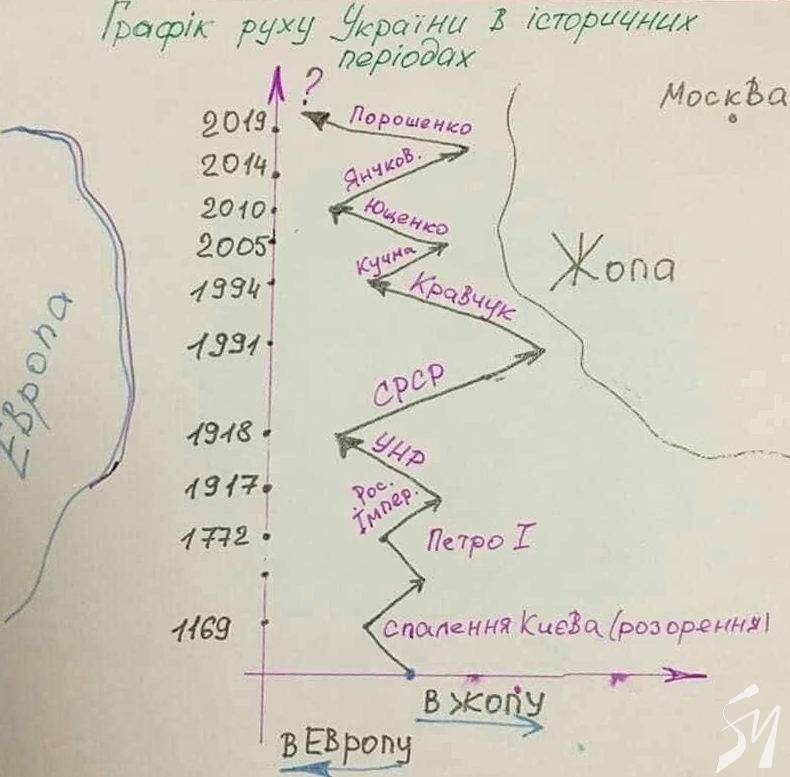 Графік руху України в історичних
періодах
?
Москва
2019
Порошенко
2014
Янчков.
2010
Ющенко
2005
Кучма
1994
Кравчук
Жопа
Европа
1991
СРСР
1918
УНР
1917
Рос.
Імпер.
1772
Петро І
1169
спалення Києва (розорення)
В жопу
В Европу